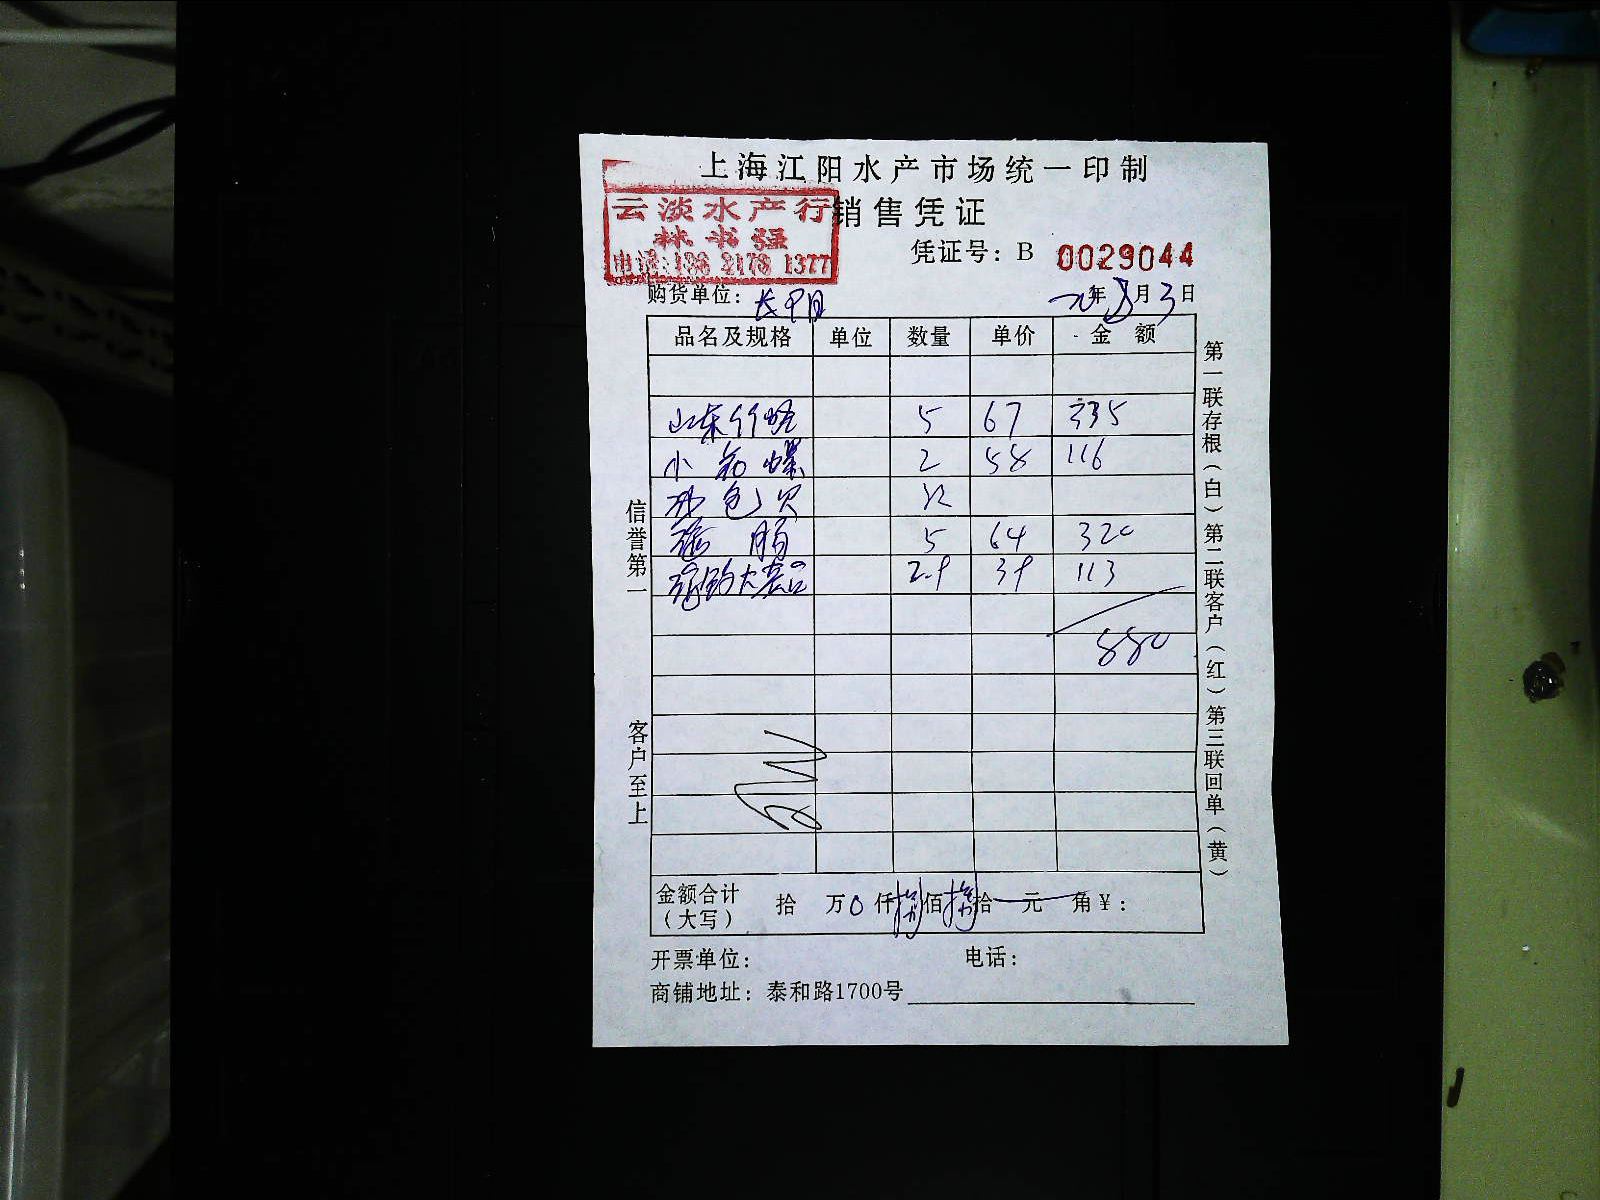 上海江阳水产市场统一印制
销售凭证
云淡水产行
林书强
电话:136 2178 1377
凭证号：B 0029044
购货单位：
年 月 3 日
品名及规格 单位 数量 单价 金额
山东竹蛏 5 67 335
小 螺 2 58 116
包贝
肠 5 64 320
2.9 39 113
880
金额合计（大写） 拾 万 0 仟 捌 佰 捌 拾 元 角 ¥：
开票单位： 电话：
商铺地址：泰和路1700号
信誉第一
客户至上
第一联存根（白）第二联客户（红）第三联回单（黄）